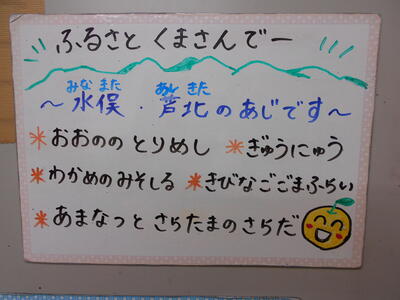 ふるさと くまさんでー
みな また あし きた
～水俣・芦北のあじです～
＊おおののとりめし ＊ぎゅうにゅう
＊わかめのみそしる ＊きびなごごまふらい
＊あまなっと さらたまのさらだ